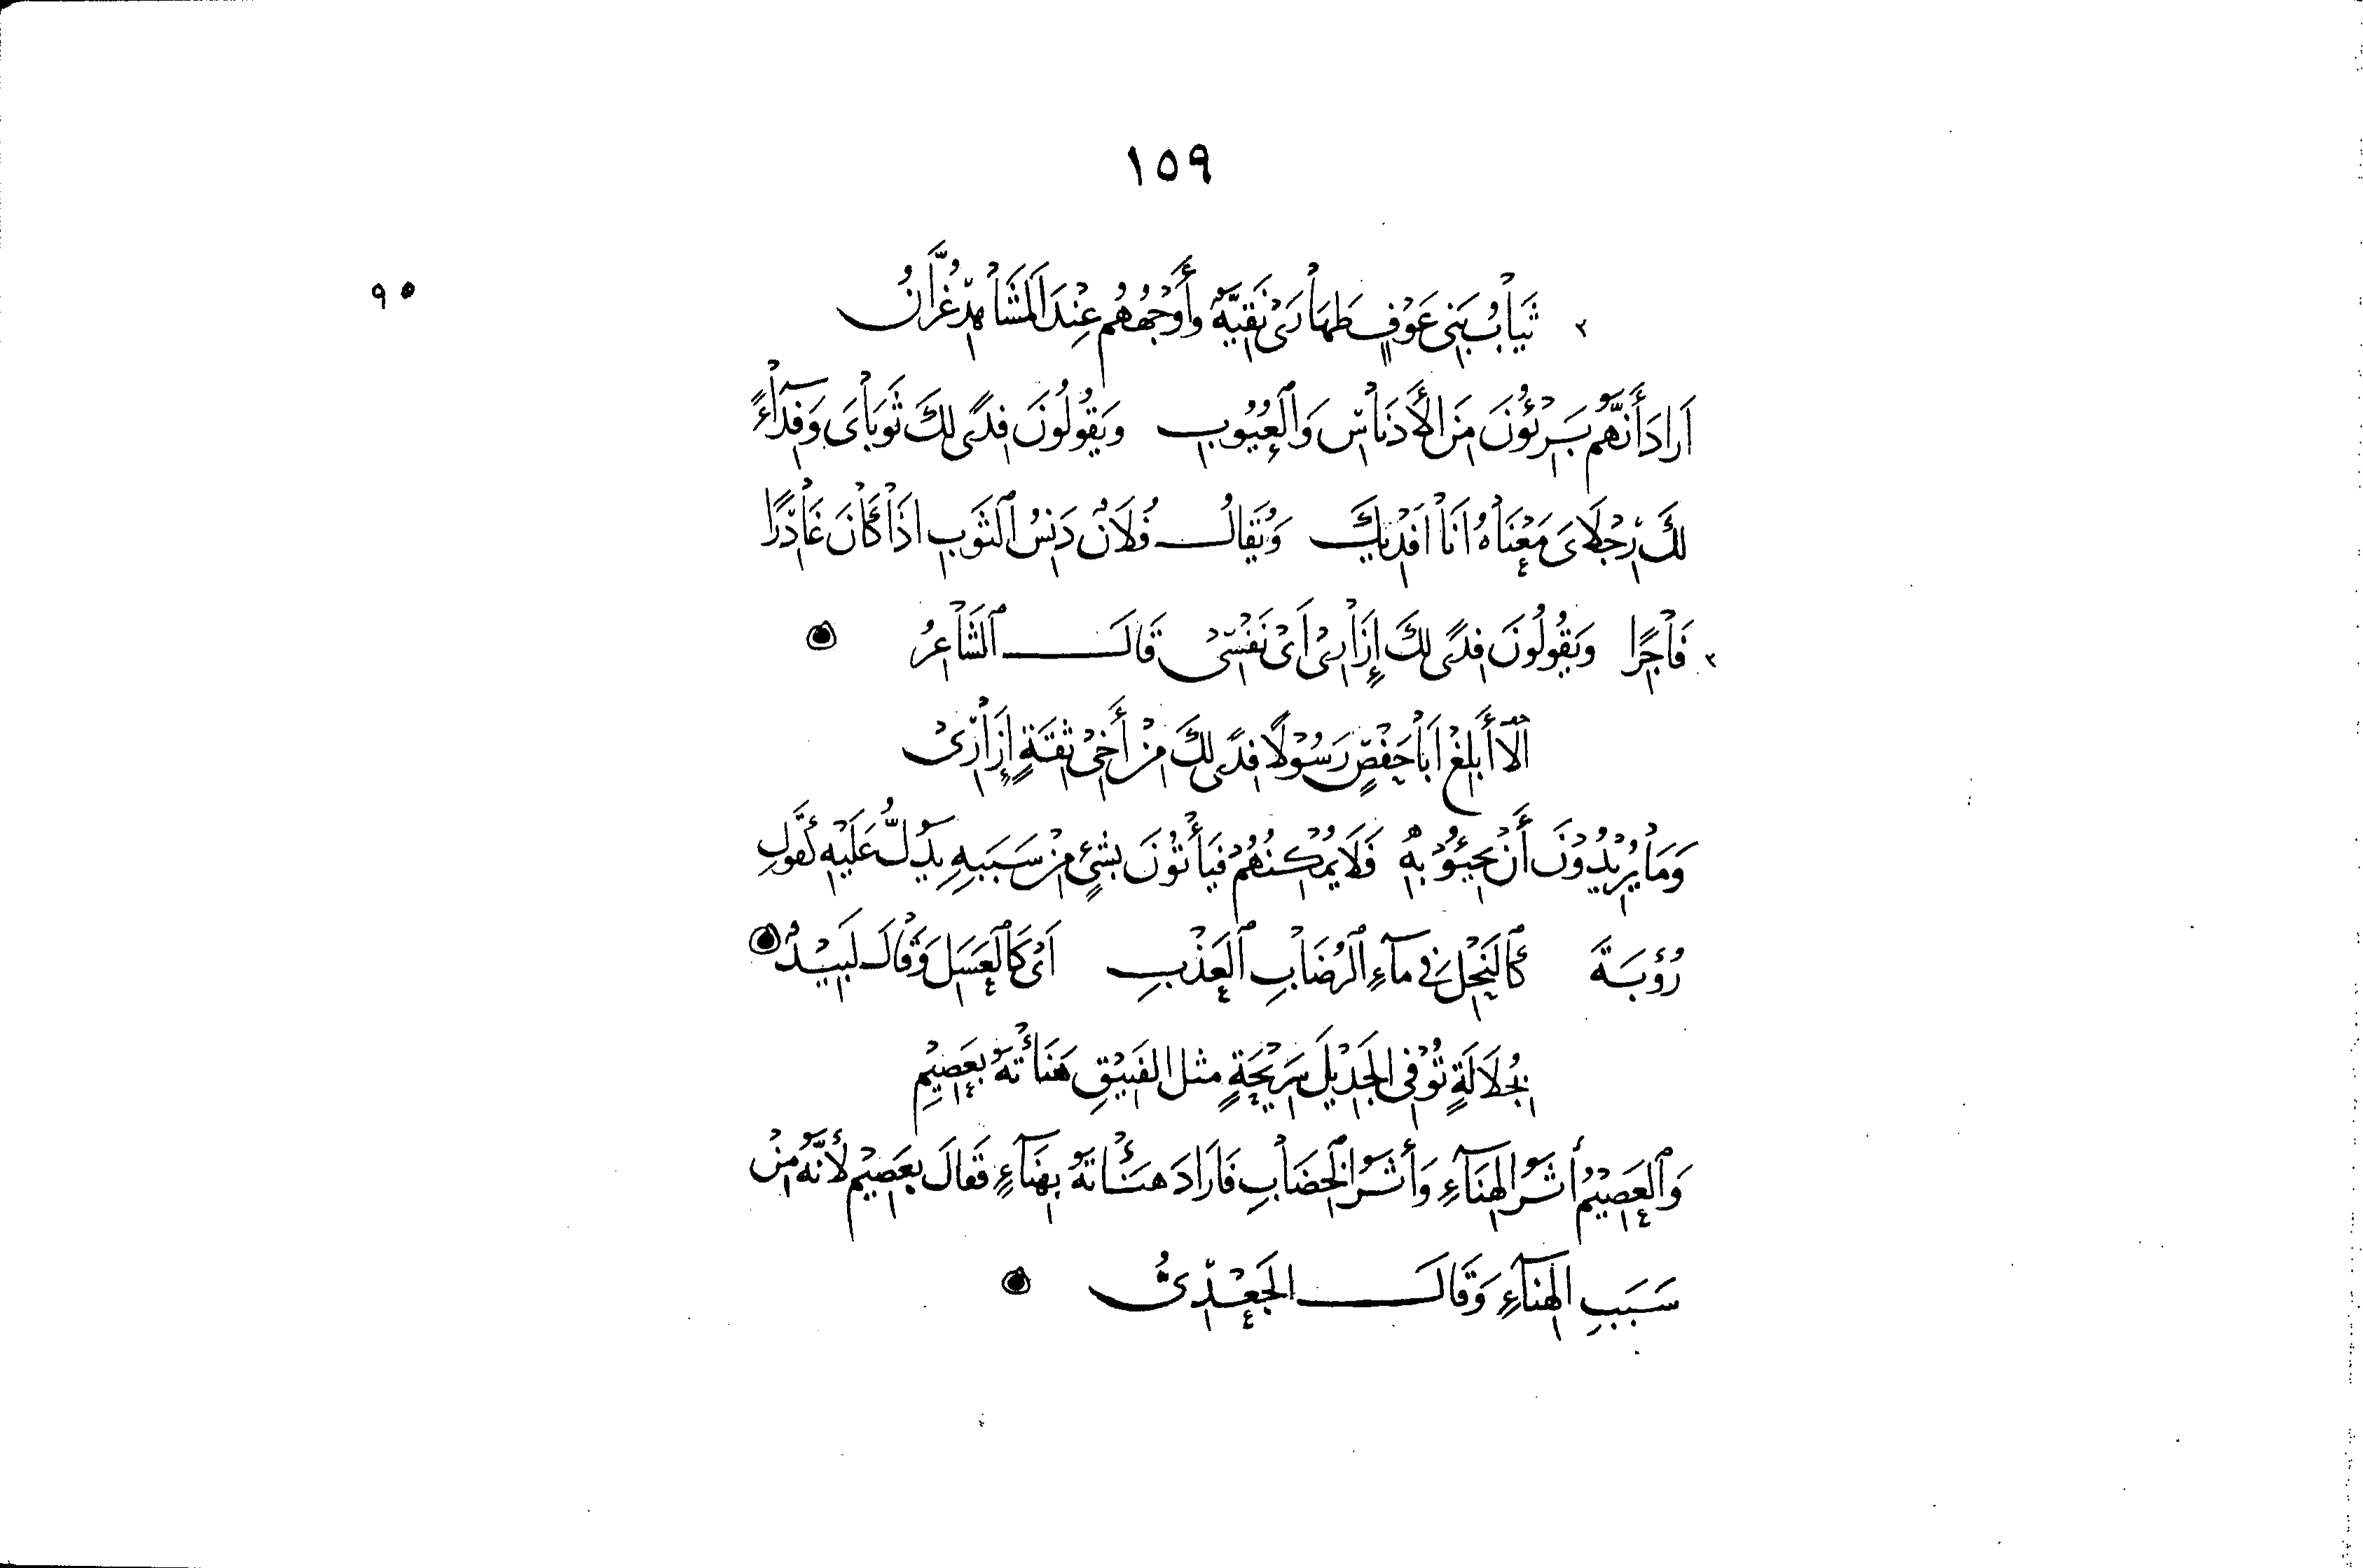 ١٥٩
٩٥
ثِيَابُ بَنِي عَوْفٍ طَهَارَى نَقِيَّةٌ وَأَوْجُهُهُم عِنْدَ الْمَشَاهِدِ غُرَّانُ
اَرَادَ أَنَّهُم بَرِئُونَ مِنَ الْأَدْنَاسِ وَالْعُيُوبِ وَيَقُولُونَ فِدًى لَكَ ثَوْبَاىَ وَفِدَآءً
لَكَ رِجْلَاىَ مَعْنَاهُ اَنَا اَفْدِيكَ وَيُقَالُ فُلَانٌ دَنِسُ الثَّوبِ اذَا كَانَ غَادِرًا
فَاجِرًا وَيَقُولُونَ فِدًى لَكَ إِزَارِىْ اَىْ نَفْسِىْ قَالَ الشَّاعِرُ
أَلَا أَبْلِغْ اَبَا حَفْصٍ رَسُوْلًا فِدًى لَكَ مِنْ أَخِىْ ثِقَةٍ إِزَارِىْ
وَمَا يُرِيْدُوْنَ أَنْ يَجِيْئُوْ بِهِ فَلَا يُمْكِنُهُمْ فَيَأْتُوْنَ بِشَىْءٍ مِنْ سَبَبِهِ يَدُلُّ عَلَيْهِ كَقَوْلِ
رُؤْبَةَ كَالنَّحْلِ فِي مَآءِ الرُّضَابِ الْعَذْبِ اَىْ كَالْعَسَلِ وَقَالَ لَبِيْدٌ
بِجُلَالَةٍ تُوْفِى الْجَدِيْلَ سَرِيْحَةٍ مثل الفَنِيْقِ هَنَأْتَهُ بِعَصِيْمِ
وَالْعَصِيْمُ أَثَرُ الْهِنَآءِ وَأَثَرُ الْخِضَابِ فَاَرَادَ هَنَأْتَهُ بِهِنَآءٍ فَقَالَ بِعَصِيْمٍ لأَنَّهُ مِنْ
سَبَبِ الهِنَآءِ وَقَالَ الْجَعْدِىُّ